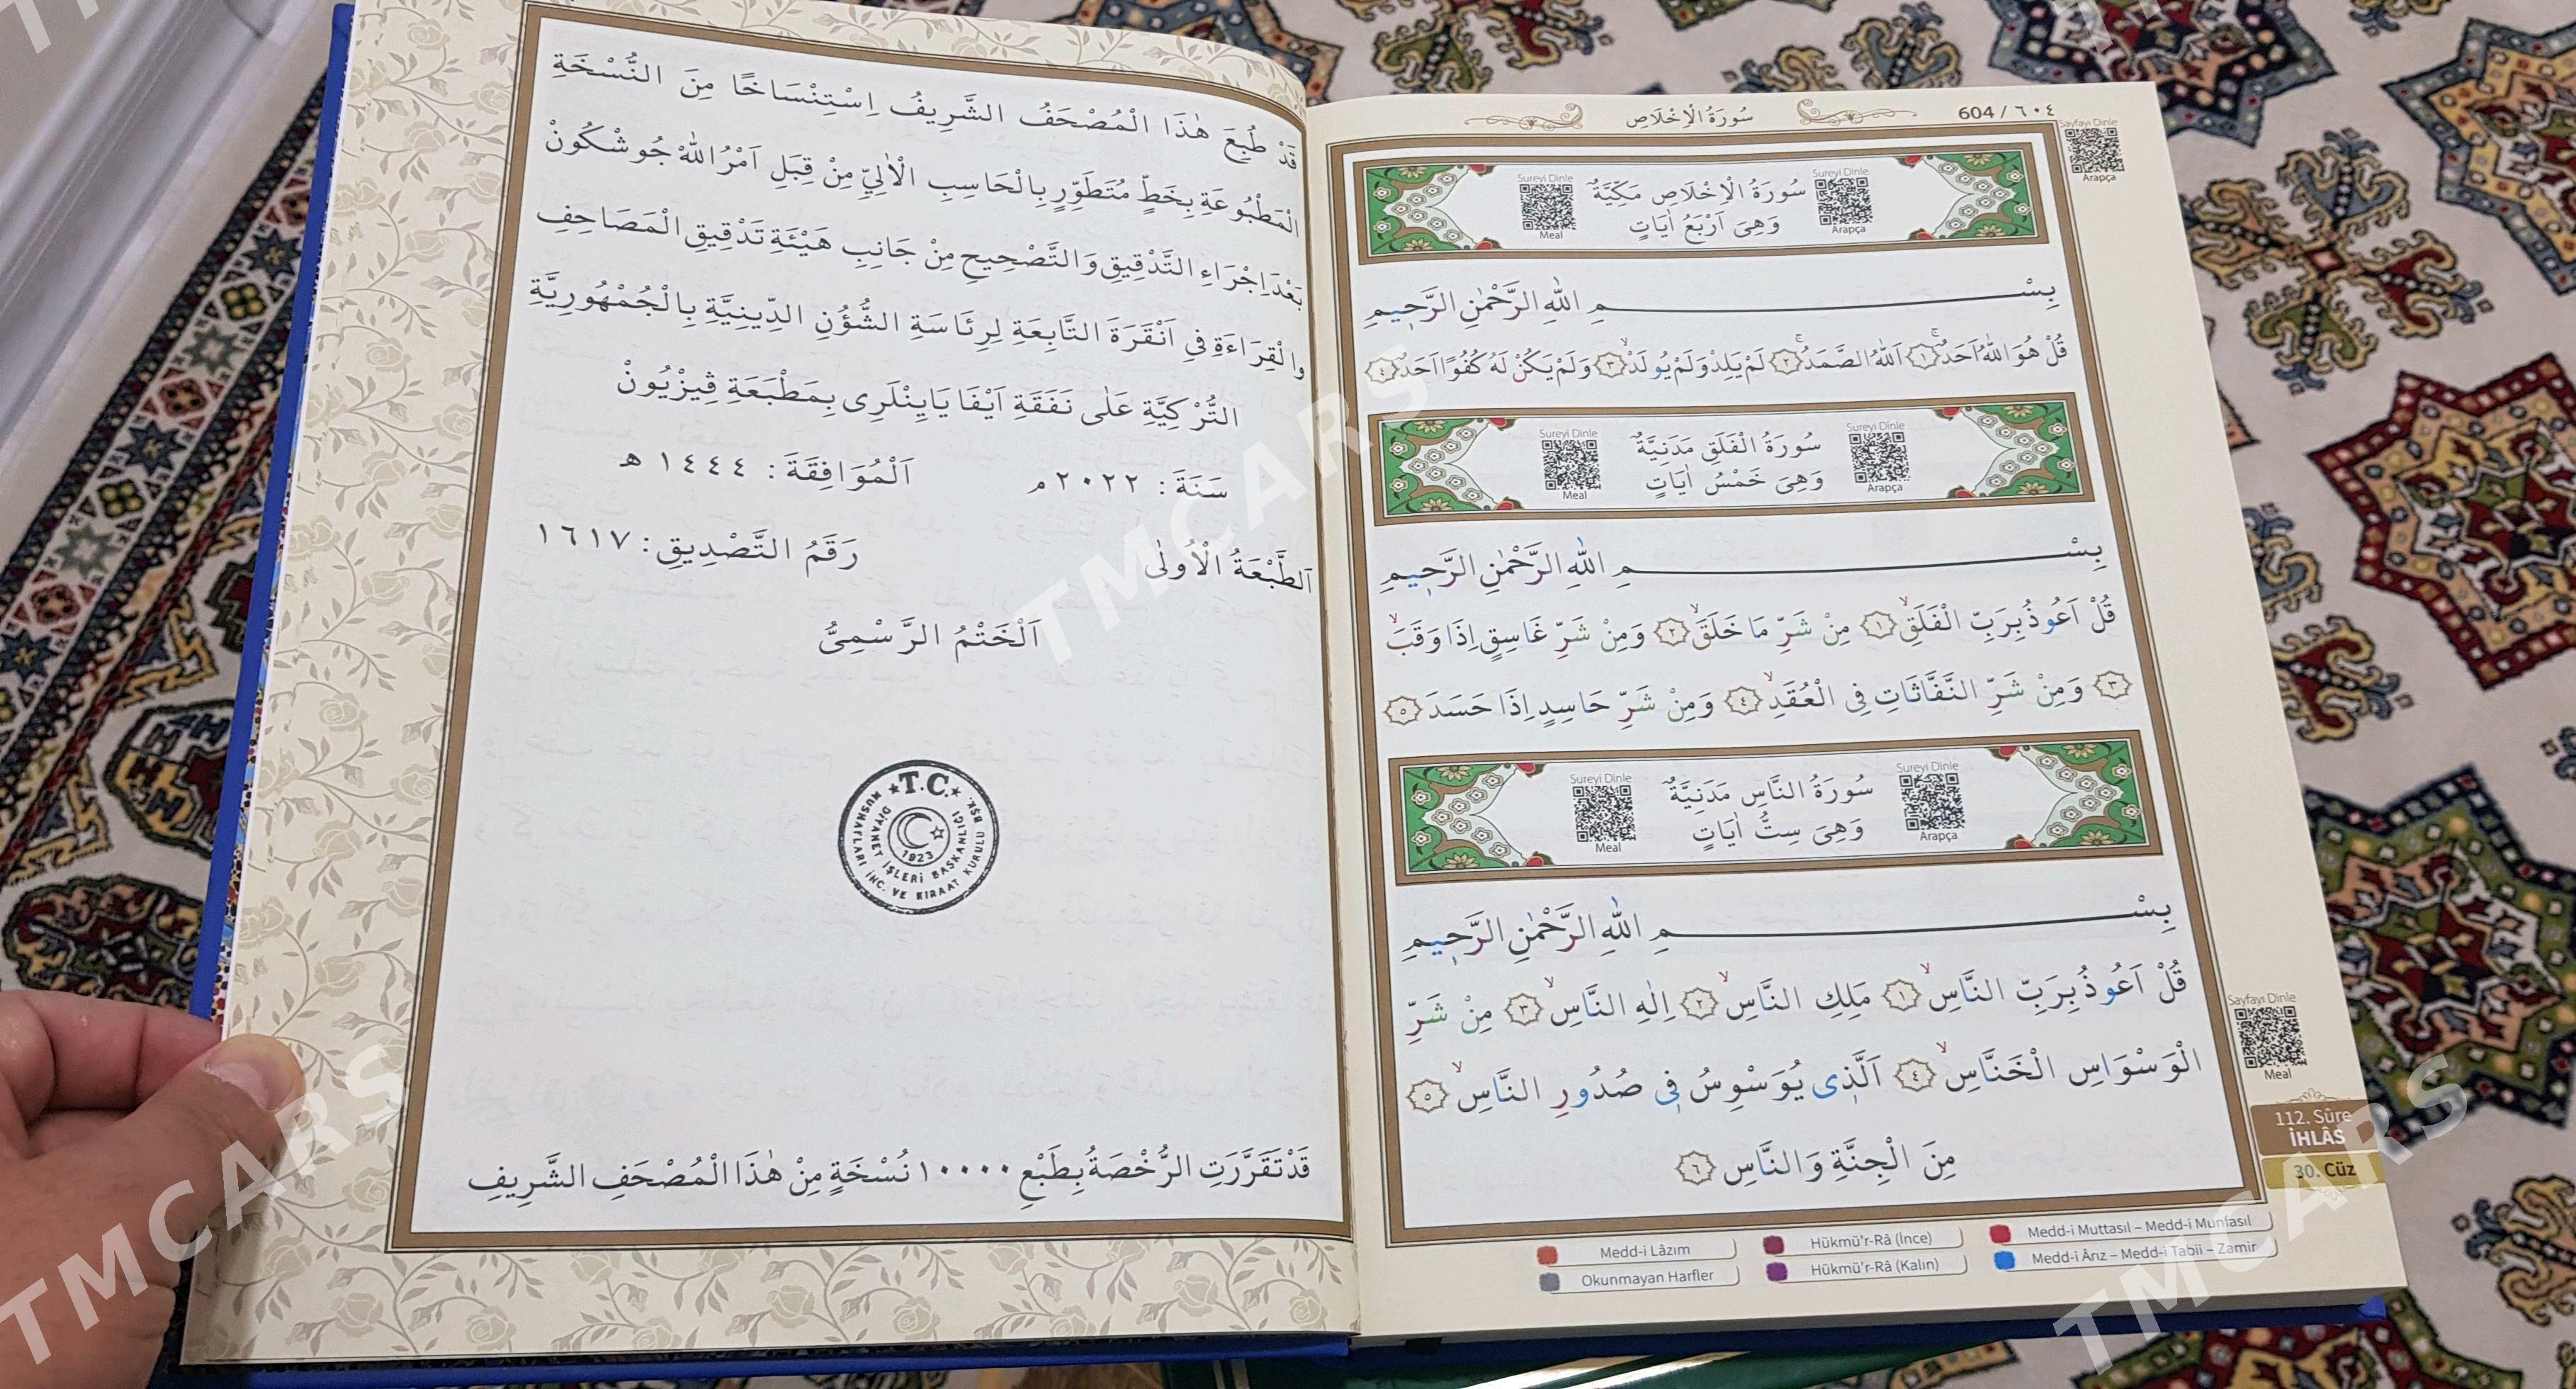 سُورَةُ الْاِخْلَاصِ
604 / ٦٠٤
Sayfayı Dinle
Arapça
Sureyi Dinle
Meal
سُورَةُ الْاِخْلَاصِ مَكِّيَّةٌ
وَهِىَ اَرْبَعُ اٰيَاتٍ
Sureyi Dinle
Arapça
بِسْمِ اللّٰهِ الرَّحْمٰنِ الرَّحٖيمِ
قُلْ هُوَ اللّٰهُ اَحَدٌۚ ﴿١﴾ اَللّٰهُ الصَّمَدُۚ ﴿٢﴾ لَمْ يَلِدْ وَلَمْ يُولَدْۙ ﴿٣﴾ وَلَمْ يَكُنْ لَهُ كُفُوًا اَحَدٌ ﴿٤﴾
Sureyi Dinle
Meal
سُورَةُ الْفَلَقِ مَدَنِيَّةٌ
وَهِىَ خَمْسُ اٰيَاتٍ
Sureyi Dinle
Arapça
بِسْمِ اللّٰهِ الرَّحْمٰنِ الرَّحٖيمِ
قُلْ اَعُوذُ بِرَبِّ الْفَلَقِۙ ﴿١﴾ مِنْ شَرِّ مَا خَلَقَۙ ﴿٢﴾ وَمِنْ شَرِّ غَاسِقٍ اِذَا وَقَبَۙ
﴿٣﴾ وَمِنْ شَرِّ النَّفَّاثَاتِ فِى الْعُقَدِۙ ﴿٤﴾ وَمِنْ شَرِّ حَاسِدٍ اِذَا حَسَدَ ﴿٥﴾
Sureyi Dinle
Meal
سُورَةُ النَّاسِ مَدَنِيَّةٌ
وَهِىَ سِتُّ اٰيَاتٍ
Sureyi Dinle
Arapça
بِسْمِ اللّٰهِ الرَّحْمٰنِ الرَّحٖيمِ
قُلْ اَعُوذُ بِرَبِّ النَّاسِۙ ﴿١﴾ مَلِكِ النَّاسِۙ ﴿٢﴾ اِلٰهِ النَّاسِۙ ﴿٣﴾ مِنْ شَرِّ
الْوَسْوَاسِ الْخَنَّاسِۙ ﴿٤﴾ اَلَّذٖى يُوَسْوِسُ فٖى صُدُورِ النَّاسِۙ ﴿٥﴾
مِنَ الْجِنَّةِ وَالنَّاسِ ﴿٦﴾
Sayfayı Dinle
Meal
112. Sûre
İHLÂS
30. Cüz
Medd-i Lâzım
Hükmü'r-Râ (İnce)
Medd-i Muttasıl – Medd-i Munfasıl
Okunmayan Harfler
Hükmü'r-Râ (Kalın)
Medd-i Ârız – Medd-i Tabii – Zamir
قَدْ طُبِعَ هٰذَا الْمُصْحَفُ الشَّرِيفُ اِسْتِنْسَاخًا مِنَ النُّسْخَةِ
الْمَطْبُوعَةِ بِخَطٍّ مُتَطَوِّرٍ بِالْحَاسِبِ الْاٰلِيِّ مِنْ قِبَلِ اَمْرُ اللّٰهْ جُوشْكُونْ
بَعْدَ اِجْرَاءِ التَّدْقِيقِ وَالتَّصْحِيحِ مِنْ جَانِبِ هَيْئَةِ تَدْقِيقِ الْمَصَاحِفِ
والْقِرَاءَةِ فِي اَنْقَرَةَ التَّابِعَةِ لِرِئَاسَةِ الشُّؤُنِ الدِّينِيَّةِ بِالْجُمْهُورِيَّةِ
التُّرْكِيَّةِ عَلٰى نَفَقَةِ اَيْفَا يَايِنْلَرِى بِمَطْبَعَةِ ڤِيزْيُونْ
سَنَةَ: ٢٠٢٢ م اَلْمُوَافِقَةَ: ١٤٤٤ هـ
اَلطَّبْعَةُ الْاُولٰى رَقَمُ التَّصْدِيقِ: ١٦١٧
اَلْخَتْمُ الرَّسْمِيُّ
★ T.C. ★
MUSHAFLARI İNC. VE KIRAAT KURULU BŞK.
DİYANET İŞLERİ BAŞKANLIĞI
1923
قَدْ تَقَرَّرَتِ الرُّخْصَةُ بِطَبْعِ ١٠٠٠٠ نُسْخَةٍ مِنْ هٰذَا الْمُصْحَفِ الشَّرِيفِ
TMCARS
TMCARS
TMCARS
TMCARS